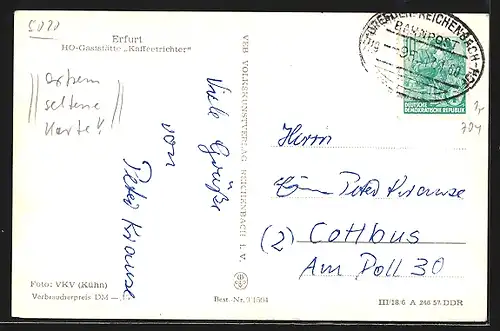 5020
Erfurt
HO-Gaststätte „Kaffeetrichter“
extrem
seltene
Karte!!
Viele Grüße
von
Peter Krause
VEB VOLKSKUNSTVERLAG REICHENBACH I. V.
DRESDEN-REICHENBACH
BAHNPOST
DEUTSCHE
DEMOKRATISCHE REPUBLIK
704
Herrn
Peter Krause
(2) Cottbus
Am Doll 30
Foto: VKV (Kühn)
Verbraucherpreis DM
Best.-Nr.
III/18/6 A 246 57. DDR